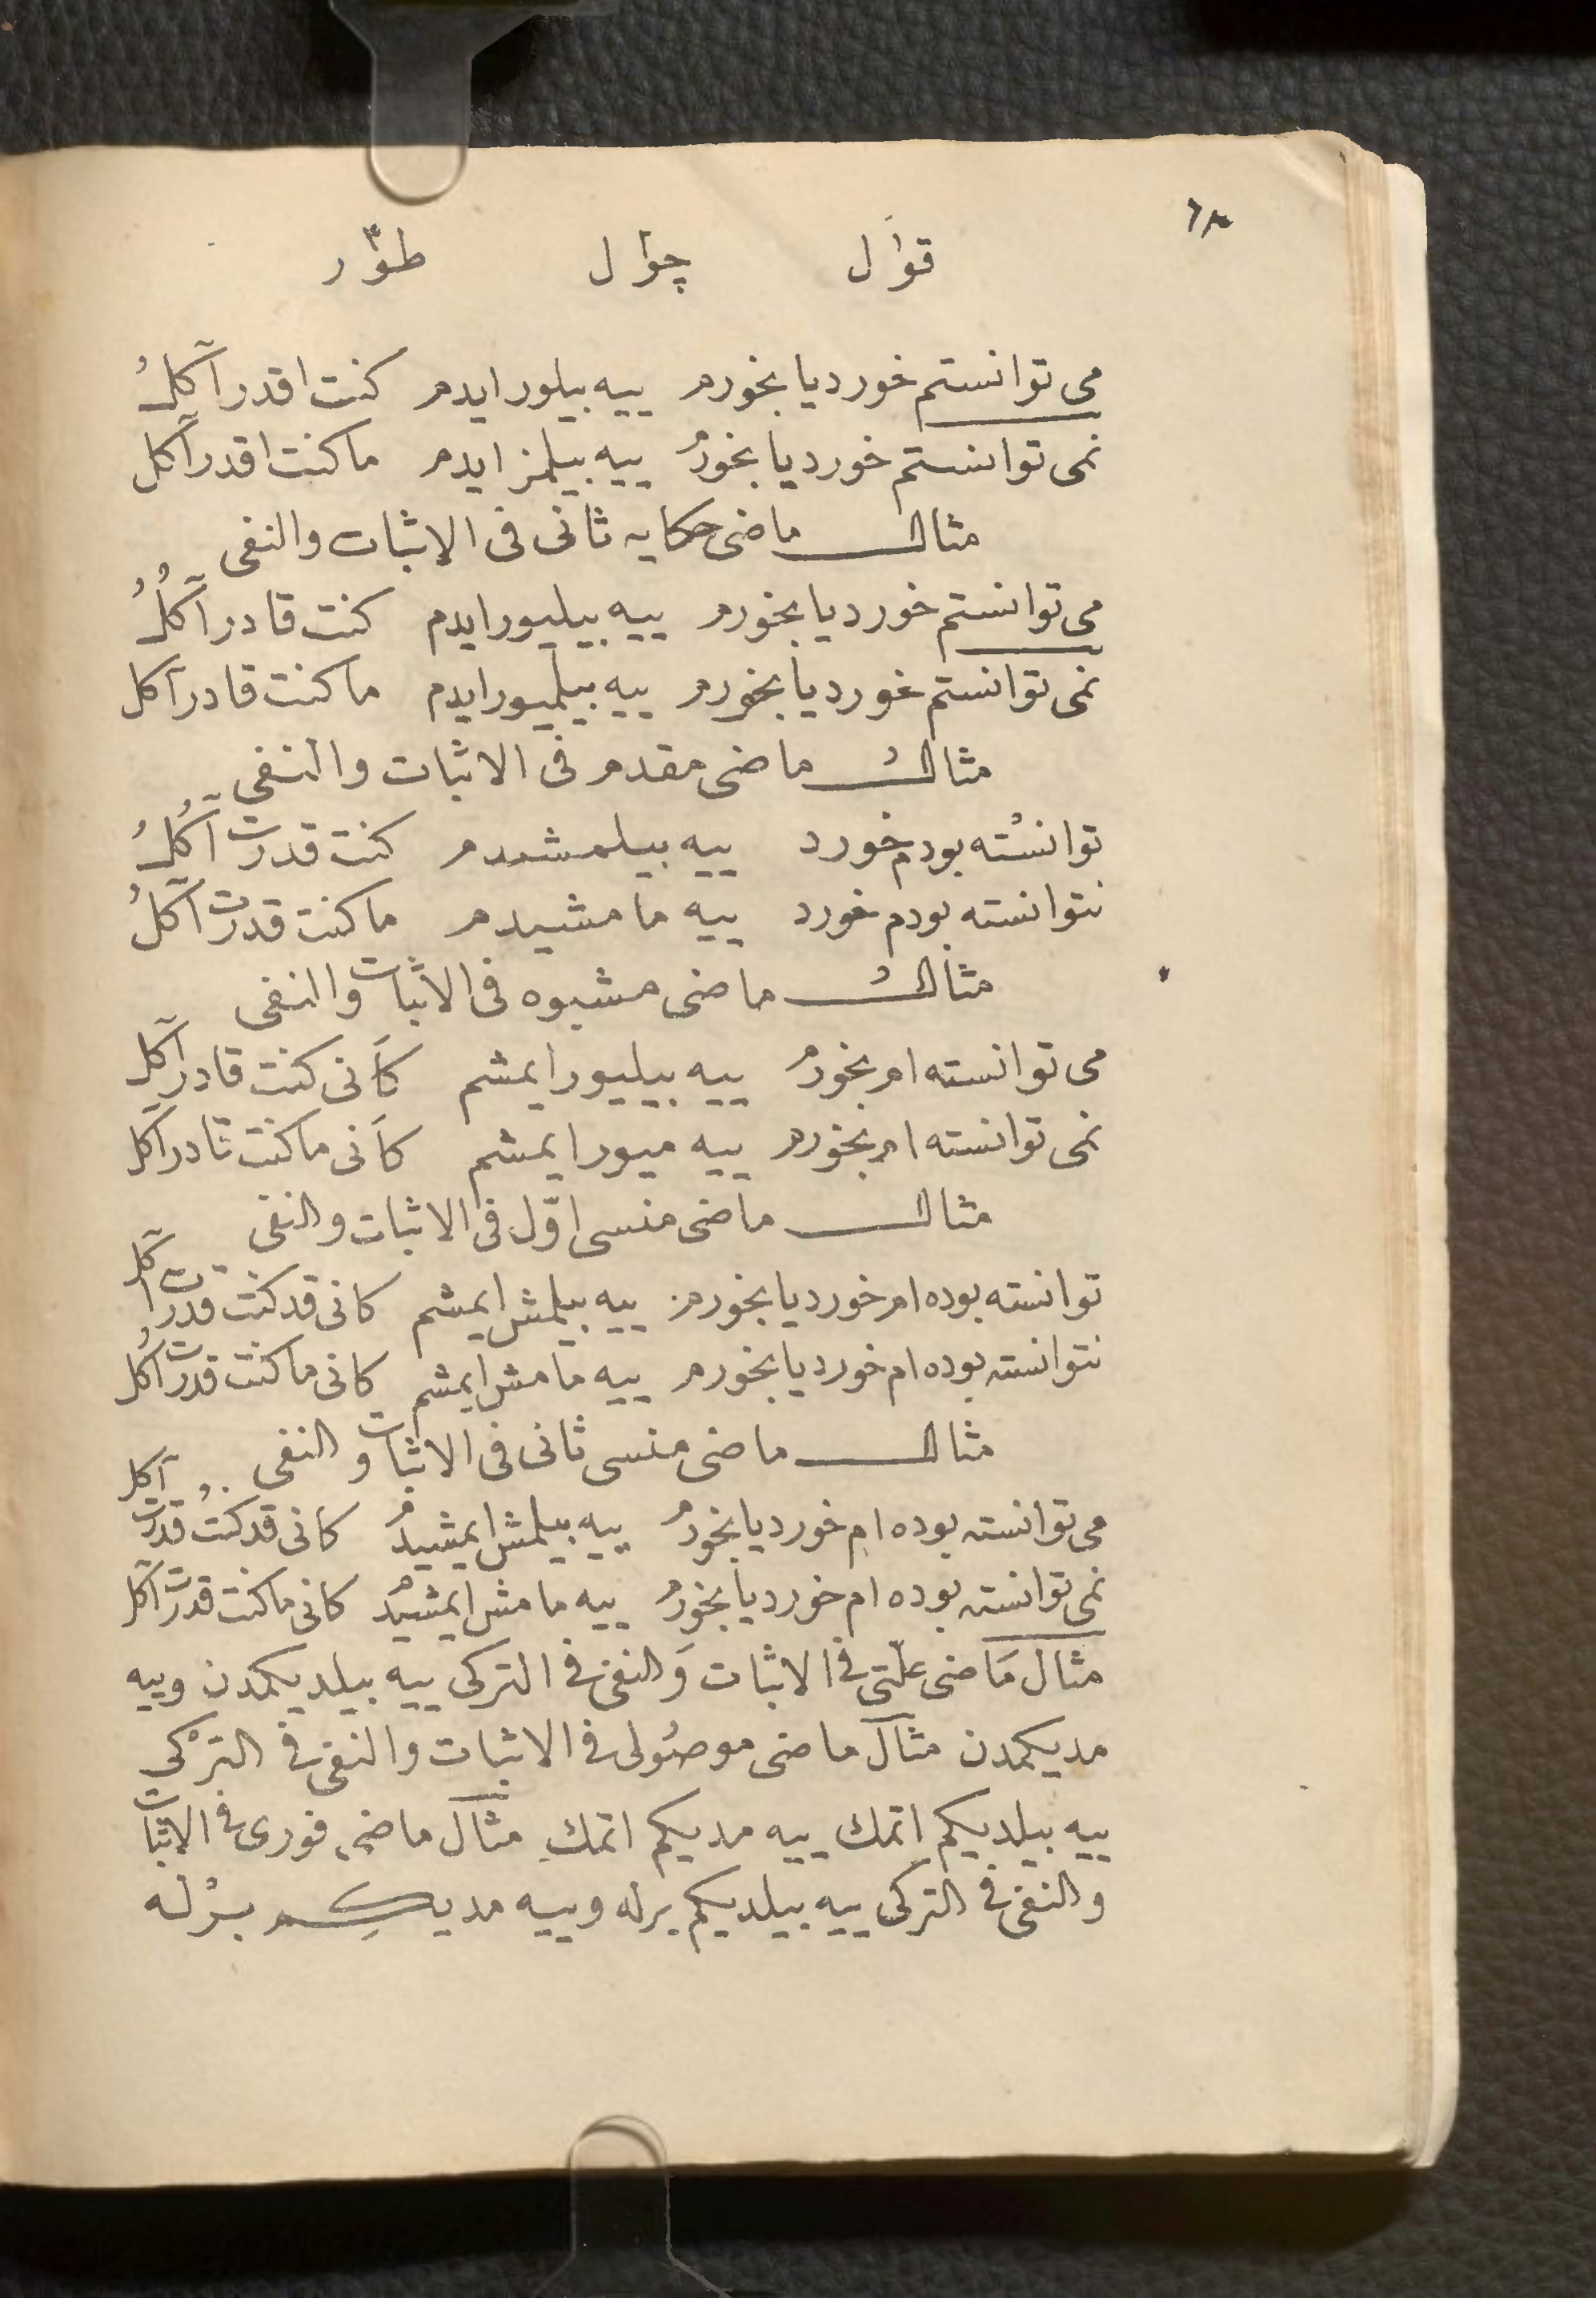 قوال چوال طوّر
می توانستم خورد یا بخورم ییه بیلور ایدم کنت اقدر آکلُ
نمی توانستم خورد یا بخورم ییه بیلمز ایدم ما کنت اقدر آکل
مثال ماضی حکایه ثانی فی الاثبات والنفی
می توانستم خورد یا بخورم ییه بیلیور ایدم کنت قادر آکلُ
نمی توانستم خورد یا بخورم ییه بیلمیور ایدم ما کنت قادر آکل
مثالُ ماضی مقدم فی الاثبات والنفی
توانسته بودم خورد ییه بیلمشدم کنت قدرت آکلُ
نتوانسته بودم خورد ییه مامشیدم ما کنت قدرت آکلُ
مثالُ ماضی مشبوه فی الاثبات والنفی
می توانسته ام بخورم ییه بیلیور ایمشم کاَنی کنت قادر آکل
نمی توانسته ام بخورم ییه میور ایمشم کاَنی ما کنت قادر آکل
مثال ماضی منسی اوّل فی الاثبات والنفی
توانسته بوده ام خورد یا بخورم ییه بیلمش ایمشم کانی قد کنت قدرت آکل
نتوانسته بوده ام خورد یا بخورم ییه مامش ایمشم کانی ما کنت قدرت آکل
مثال ماضی منسی ثانی فی الاثبات والنفی
می توانسته بوده ام خورد یا بخورم ییه بیلمش ایمشیدم کانی قد کنت قدرت آکل
نمی توانسته بوده ام خورد یا بخورم ییه مامش ایمشیدم کانی ما کنت قدرت آکل
مثال مَاضی علّتی فی الاثبات وَالنفی فی الترکی ییه بیلدیکمدن وییه
مدیکمدن مثال ماضی موصُولی فی الاثبات والنفی فی الترْکی
ییه بیلدیکم اتمك ییه مدیکم اتمكِ مثال ماضی فوری فی الاثبات
والنفی فی الترکی ییه بیلدیکم برله وییه مدیکِم برْله